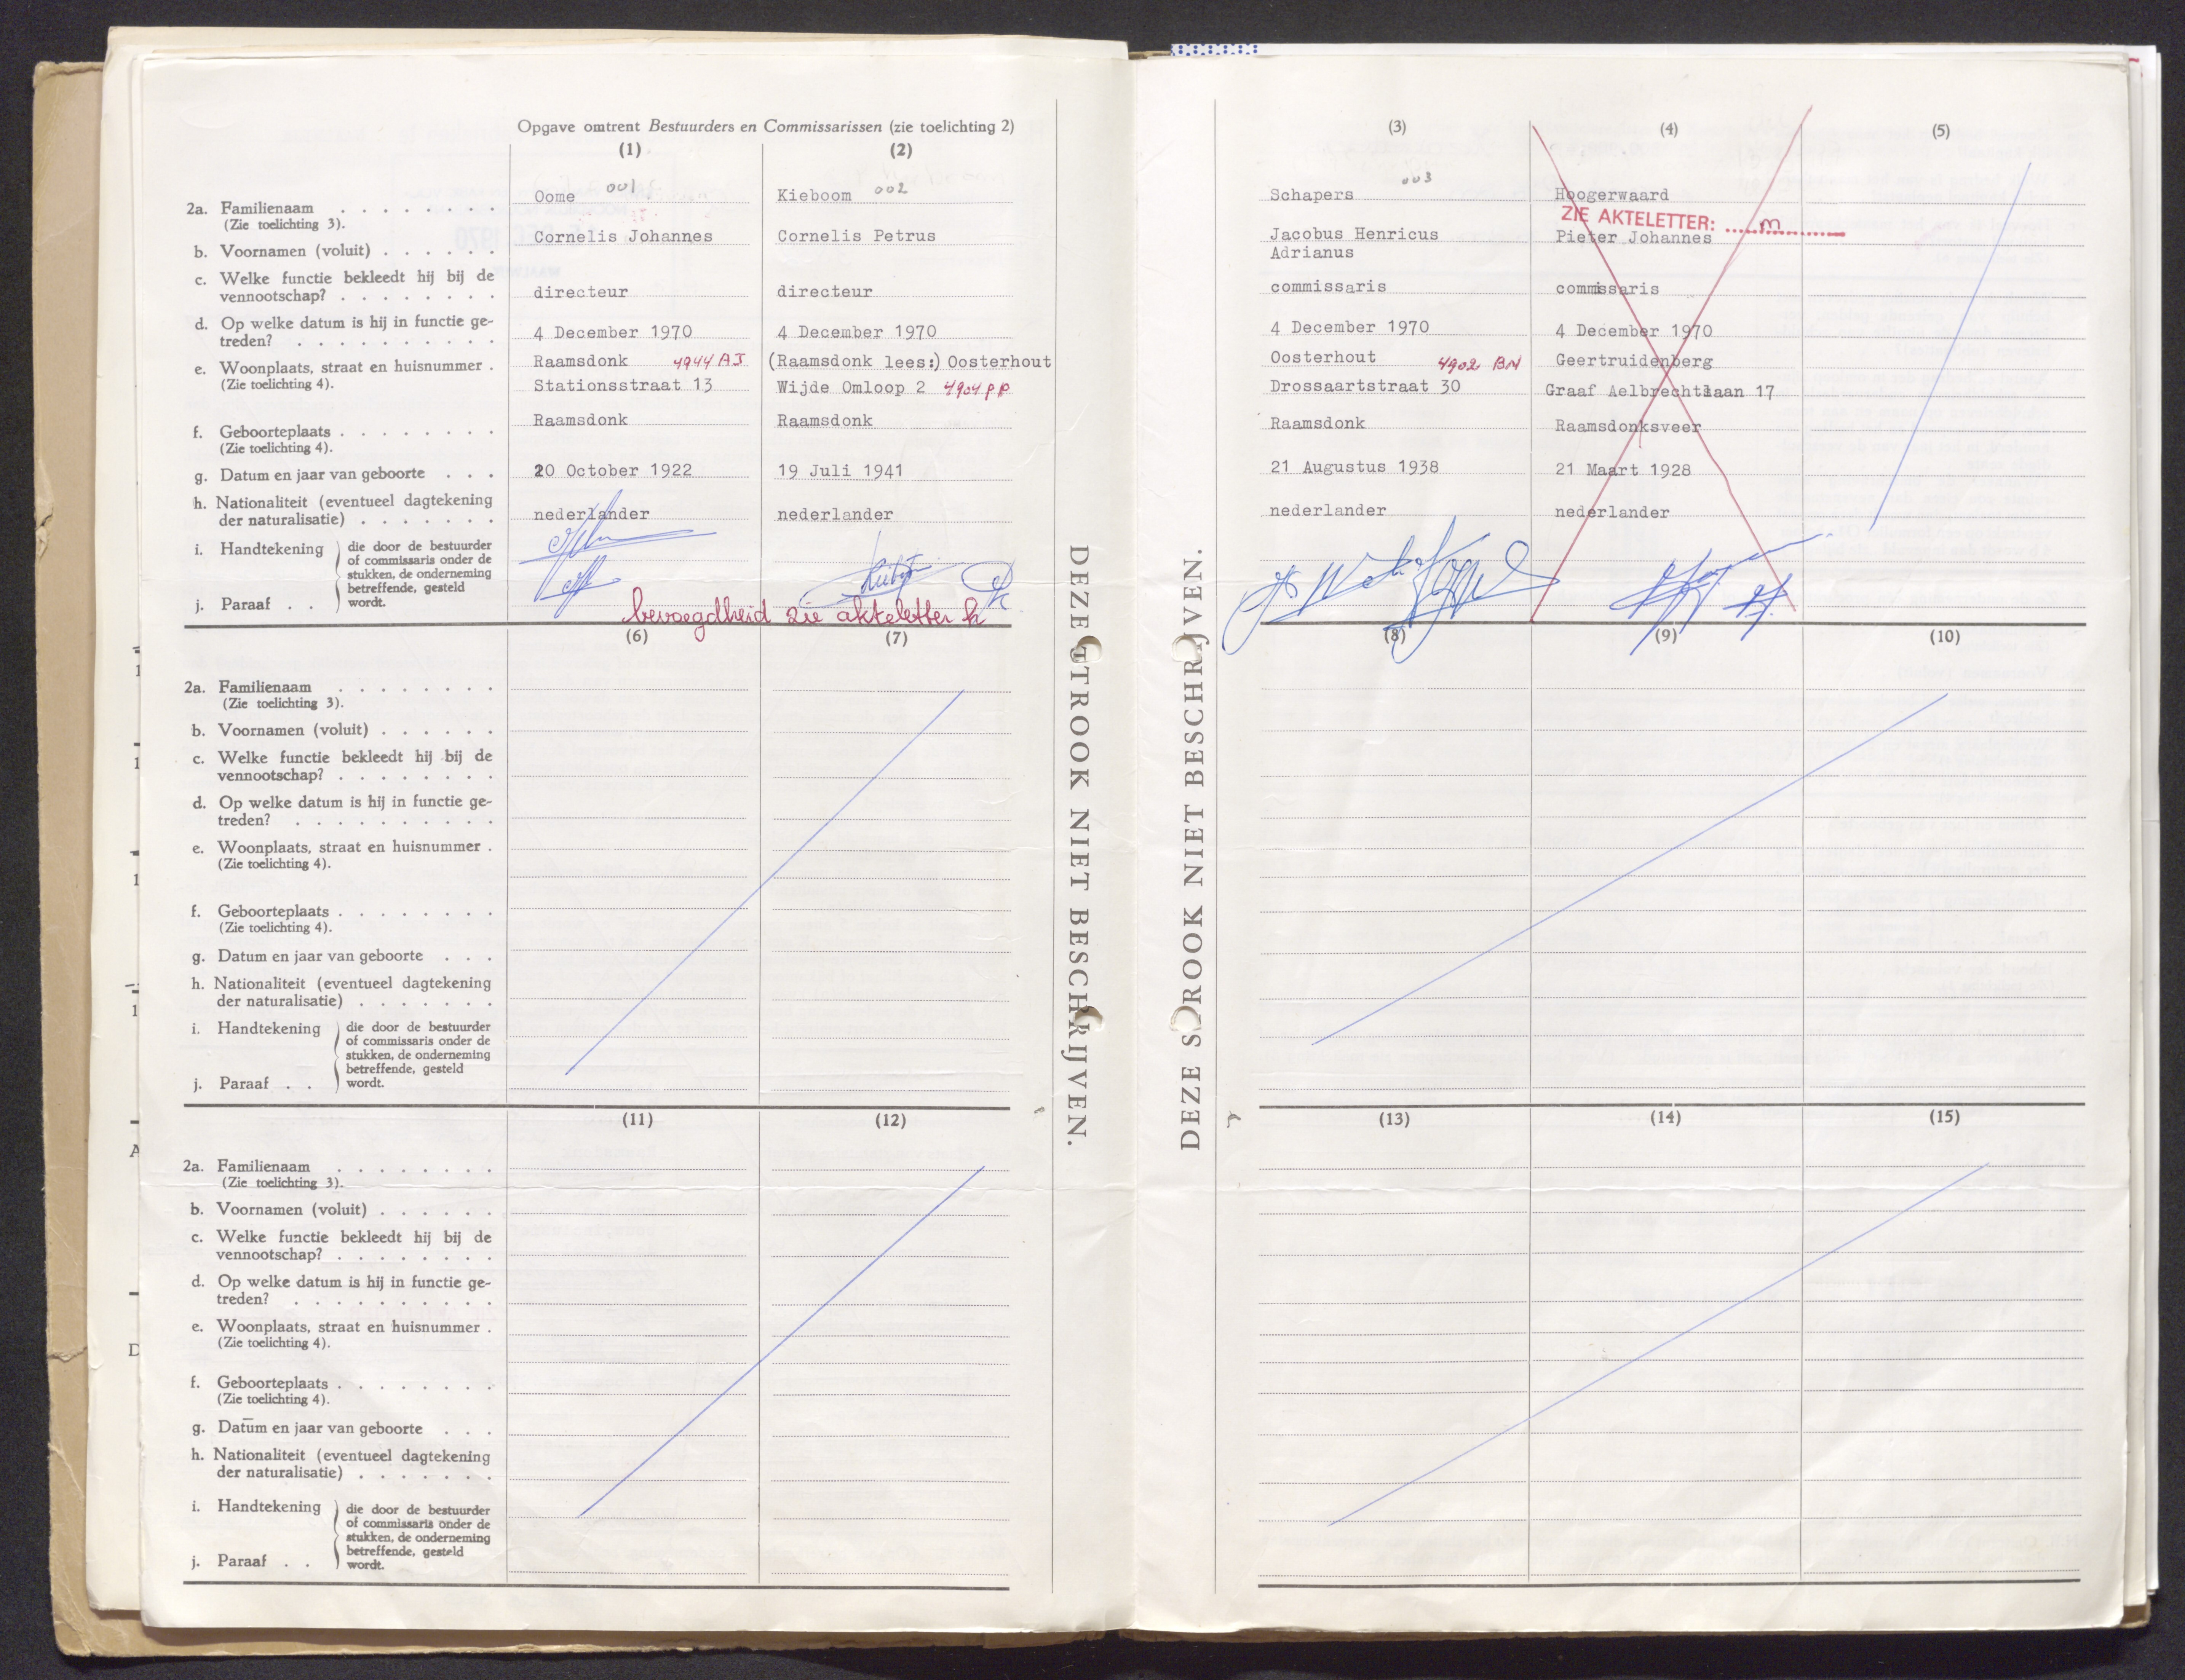 Opgave omtrent Bestuurders en Commissarissen (zie toelichting 2)
(1) (2) (3) (4) (5)
2a. Familienaam . . . . . . . . Oome 001 Kieboom 002 Schapers 003 Hoogerwaard
(Zie toelichting 3).
ZIE AKTELETTER: m
b. Voornamen (voluit) . . . . . . Cornelis Johannes Cornelis Petrus Jacobus Henricus Pieter Johannes
Adrianus
c. Welke functie bekleedt hij bij de
vennootschap? . . . . . . . . directeur directeur commissaris commissaris
d. Op welke datum is hij in functie ge-
treden? . . . . . . . . . . 4 December 1970 4 December 1970 4 December 1970 4 December 1970
e. Woonplaats, straat en huisnummer . Raamsdonk 4944 AJ (Raamsdonk lees:) Oosterhout Oosterhout 4902 BN Geertruidenberg
(Zie toelichting 4). Stationsstraat 13 Wijde Omloop 2 4904 PP Drossaartstraat 30 Graaf Aelbrechtlaan 17
f. Geboorteplaats . . . . . . . . Raamsdonk Raamsdonk Raamsdonk Raamsdonksveer
(Zie toelichting 4).
g. Datum en jaar van geboorte . . . 20 October 1922 19 Juli 1941 21 Augustus 1938 21 Maart 1928
h. Nationaliteit (eventueel dagtekening
der naturalisatie) . . . . . . . nederlander nederlander nederlander nederlander
i. Handtekening die door de bestuurder
of commissaris onder de
stukken, de onderneming
betreffende, gesteld
j. Paraaf . . wordt.
bevoegdheid zie akteletter k
DEZE STROOK NIET BESCHRIJVEN.
DEZE STROOK NIET BESCHRIJVEN.
(6) (7) (8) (9) (10)
2a. Familienaam . . . . . . . .
(Zie toelichting 3).
b. Voornamen (voluit) . . . . . .
c. Welke functie bekleedt hij bij de
vennootschap? . . . . . . . .
d. Op welke datum is hij in functie ge-
treden? . . . . . . . . . .
e. Woonplaats, straat en huisnummer .
(Zie toelichting 4).
f. Geboorteplaats . . . . . . . .
(Zie toelichting 4).
g. Datum en jaar van geboorte . . .
h. Nationaliteit (eventueel dagtekening
der naturalisatie) . . . . . . .
i. Handtekening die door de bestuurder
of commissaris onder de
stukken, de onderneming
betreffende, gesteld
j. Paraaf . . wordt.
(11) (12) (13) (14) (15)
2a. Familienaam . . . . . . . .
(Zie toelichting 3).
b. Voornamen (voluit) . . . . . .
c. Welke functie bekleedt hij bij de
vennootschap? . . . . . . . .
d. Op welke datum is hij in functie ge-
treden? . . . . . . . . . .
e. Woonplaats, straat en huisnummer .
(Zie toelichting 4).
f. Geboorteplaats . . . . . . . .
(Zie toelichting 4).
g. Datum en jaar van geboorte . . .
h. Nationaliteit (eventueel dagtekening
der naturalisatie) . . . . . . .
i. Handtekening die door de bestuurder
of commissaris onder de
stukken, de onderneming
betreffende, gesteld
j. Paraaf . . wordt.